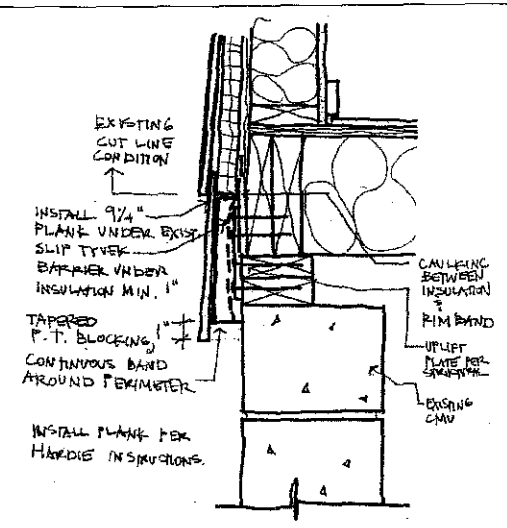 EXISTING
CUT LINE
CONDITION
INSTALL 9¼"
PLANK UNDER EXIST.
SLIP TYVEK
BARRIER UNDER
INSULATION MIN. 1"
TAPERED
P.T. BLOCKING,
1"
CONTINUOUS BAND
AROUND PERIMETER
INSTALL PLANK PER
HARDIE INSTRUCTIONS.
CAULKING
BETWEEN
INSULATION
&
RIM BAND
UPLIFT
PLATE PER
STRUCTURAL
EXISTING
CMU